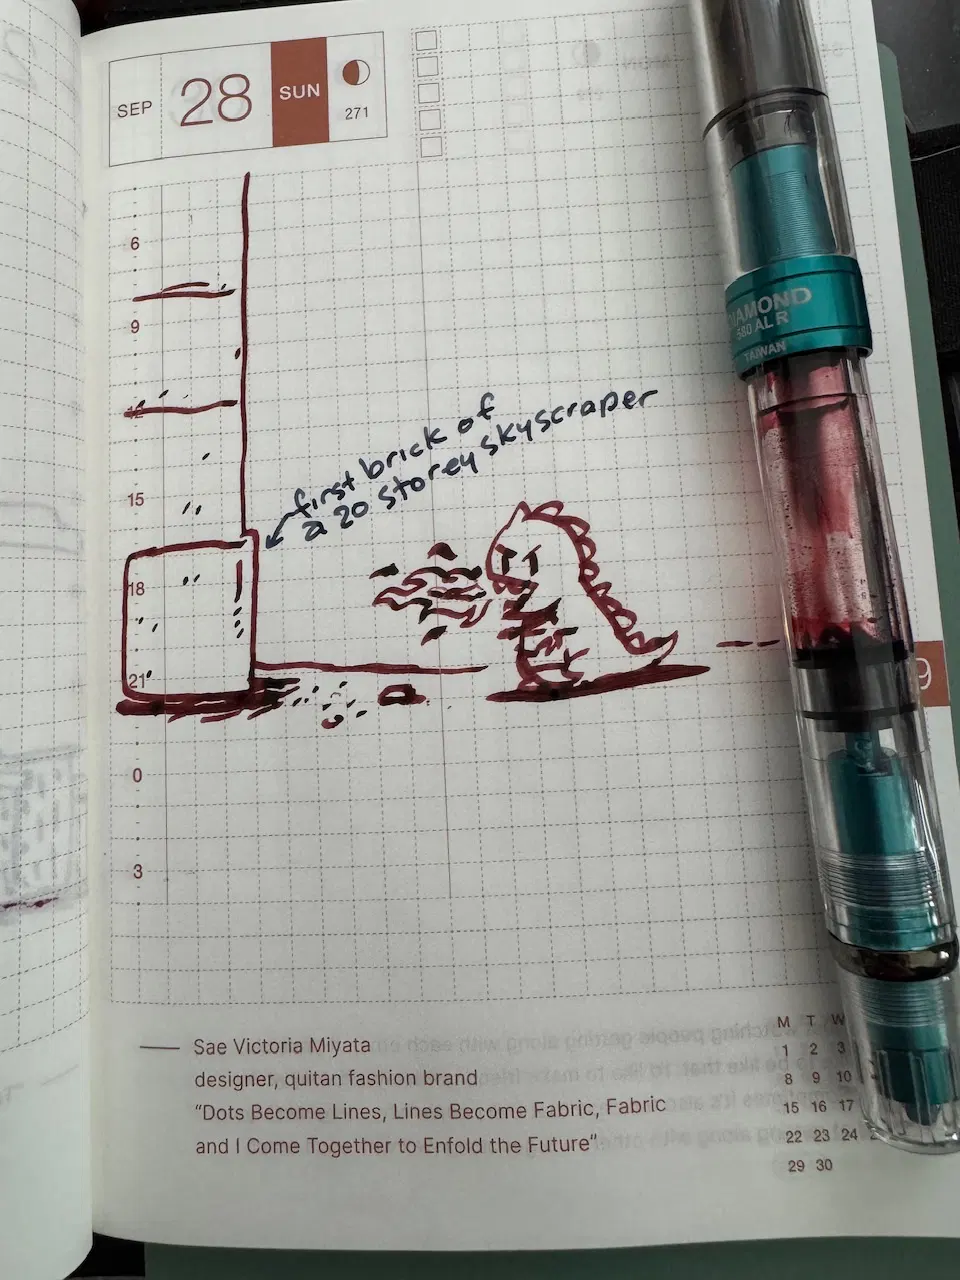 SEP 28 SUN
271
6
9
12
first brick of
a 20 storey skyscraper
15
18
21
0
3
DIAMOND
580 AL R
TAIWAN
9
Sae Victoria Miyata
designer, quitan fashion brand
“Dots Become Lines, Lines Become Fabric, Fabric
and I Come Together to Enfold the Future”
M T W
1 2 3
8 9 10
15 16 17
22 23 24
29 30